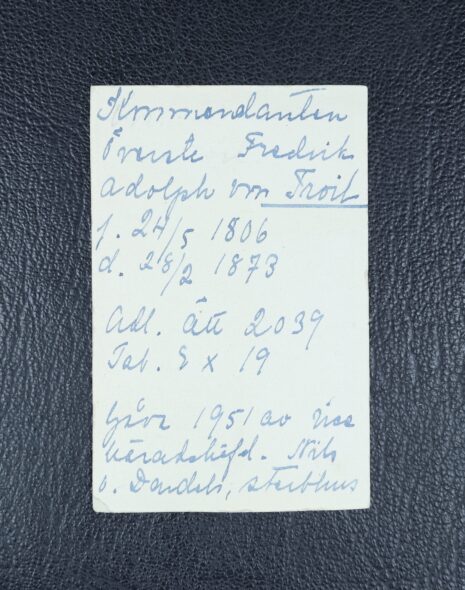 Kommendanten
Överste Fredrik
Adolph von Troil
f. 24/5 1806
d. 28/2 1873
Adl. Ätt 2039
Tab. 8 x 19
Gåva 1951 av vice
häradshöfd. Nils
v. Dardels, sterbhus